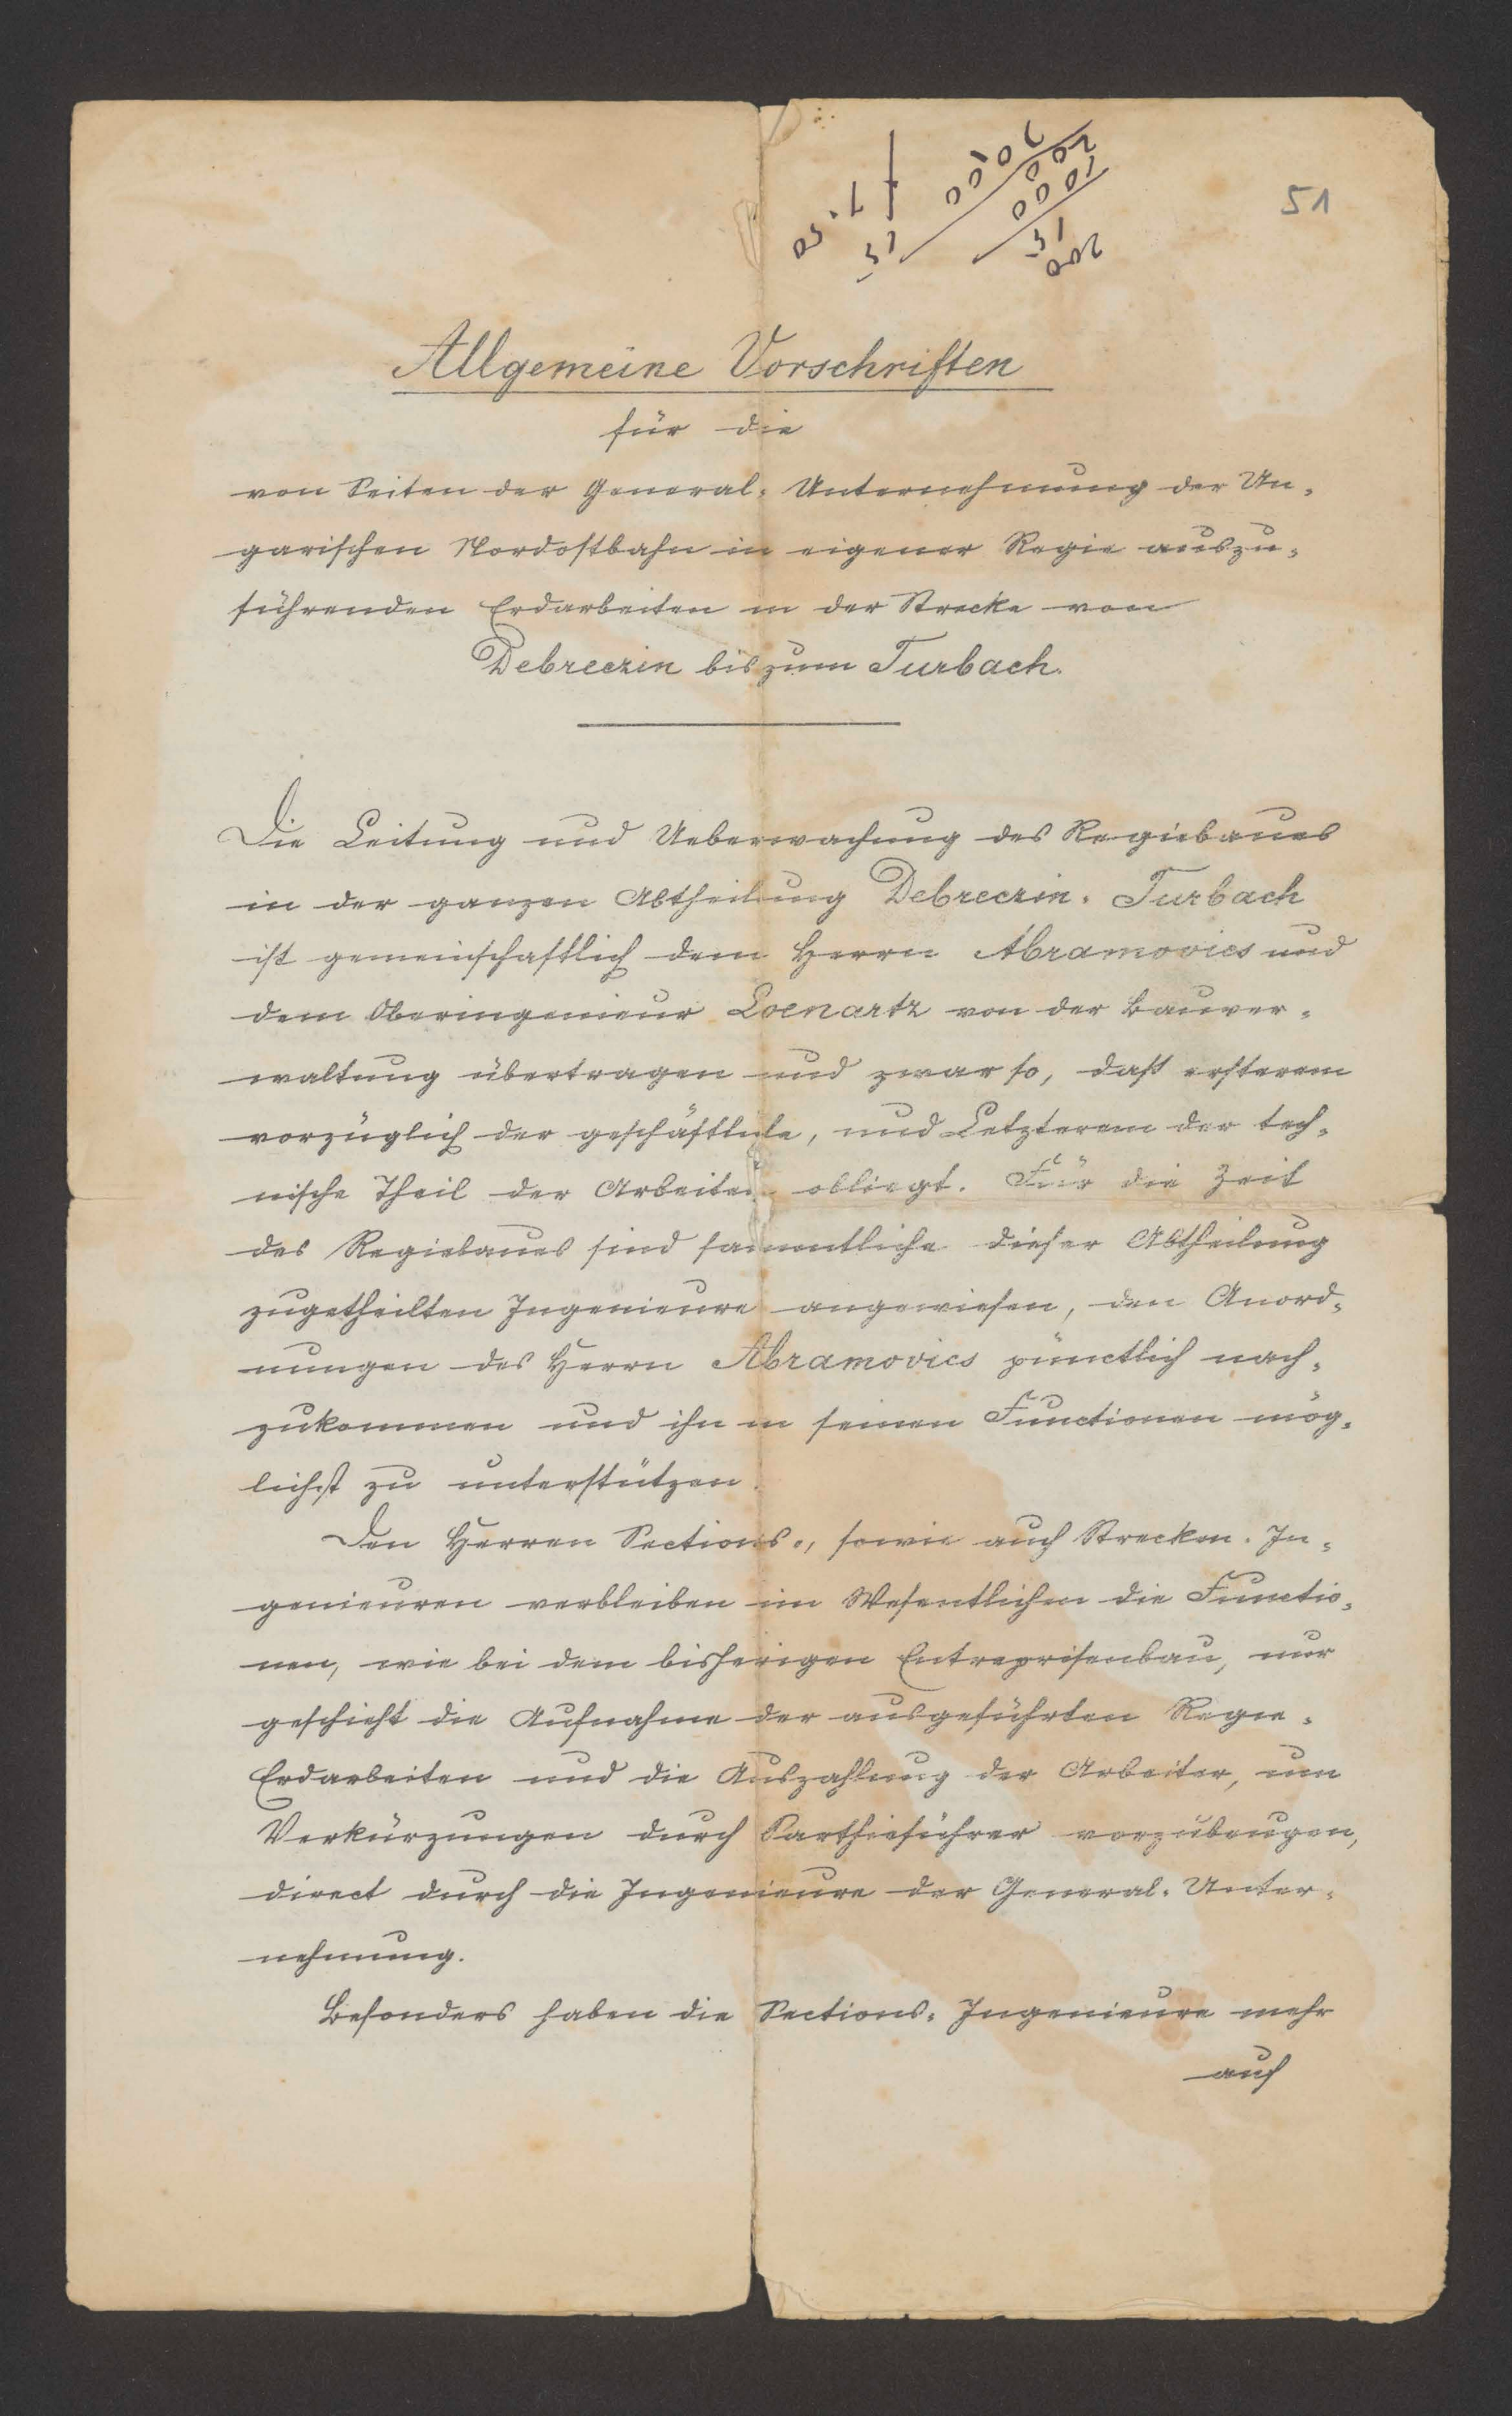 51
Allgemeine Vorschriften
für die
von Seiten der General-Unternehmung der Un-
garischen Nordostbahn in eigener Regie auszu-
führenden Erdarbeiten in der Strecke von
Debreczin bis zum Turbach.
Die Leitung und Ueberwachung des Regiebaues
in der ganzen Abtheilung Debreczin-Turbach
ist gemeinschaftlich dem Herrn Abramovics und
dem Oberingenieur Loenartz von der Bauver-
waltung übertragen und zwar so, daß ersterem
vorzüglich der geschäftliche, und Letzterem der tech-
nische Theil der Arbeiten obliegt. Für die Zeit
des Regiebaues sind sammtliche dieser Abtheilung
zugetheilten Ingenieure angewiesen, den Anord-
nungen des Herrn Abramovics pünctlich nach-
zukommen und ihn in seinen Functionen mög-
lichst zu unterstützen.
Den Herren Sections-, sowie auch Strecken-In-
genieuren verbleiben im Wesentlichen die Functio-
nen, wie bei dem bisherigen Entreprisenbau, nur
geschieht die Aufnahme der ausgeführten Regie-
Erdarbeiten und die Auszahlung der Arbeiter, um
Verkürzungen durch Parthieführer vorzubeugen,
direct durch die Ingenieure der General-Unter-
nehmung.
Besonders haben die Sections-Ingenieure mehr
auf